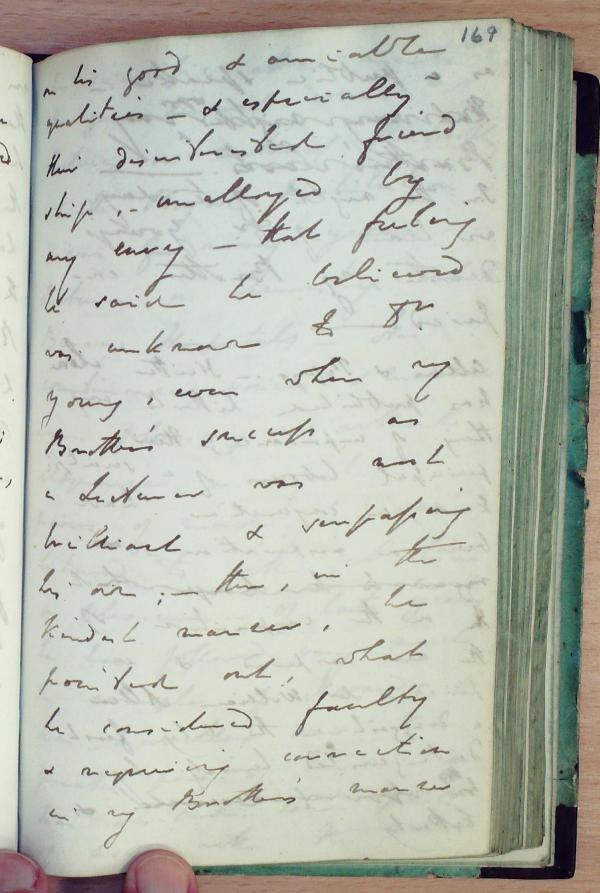 169
on his good & amiable
qualities – & especially
their disinterested friend
ship, – unalloyed by
any envy – that feeling
he said he believed
was unknown to Dr.
young, even when my
Brother's success as
a Lecturer was most
brilliant & surpassing
his own; – then, in the
kindest manner, he
pointed out, what
he considered faulty
& requiring correction
in my Brother's manner